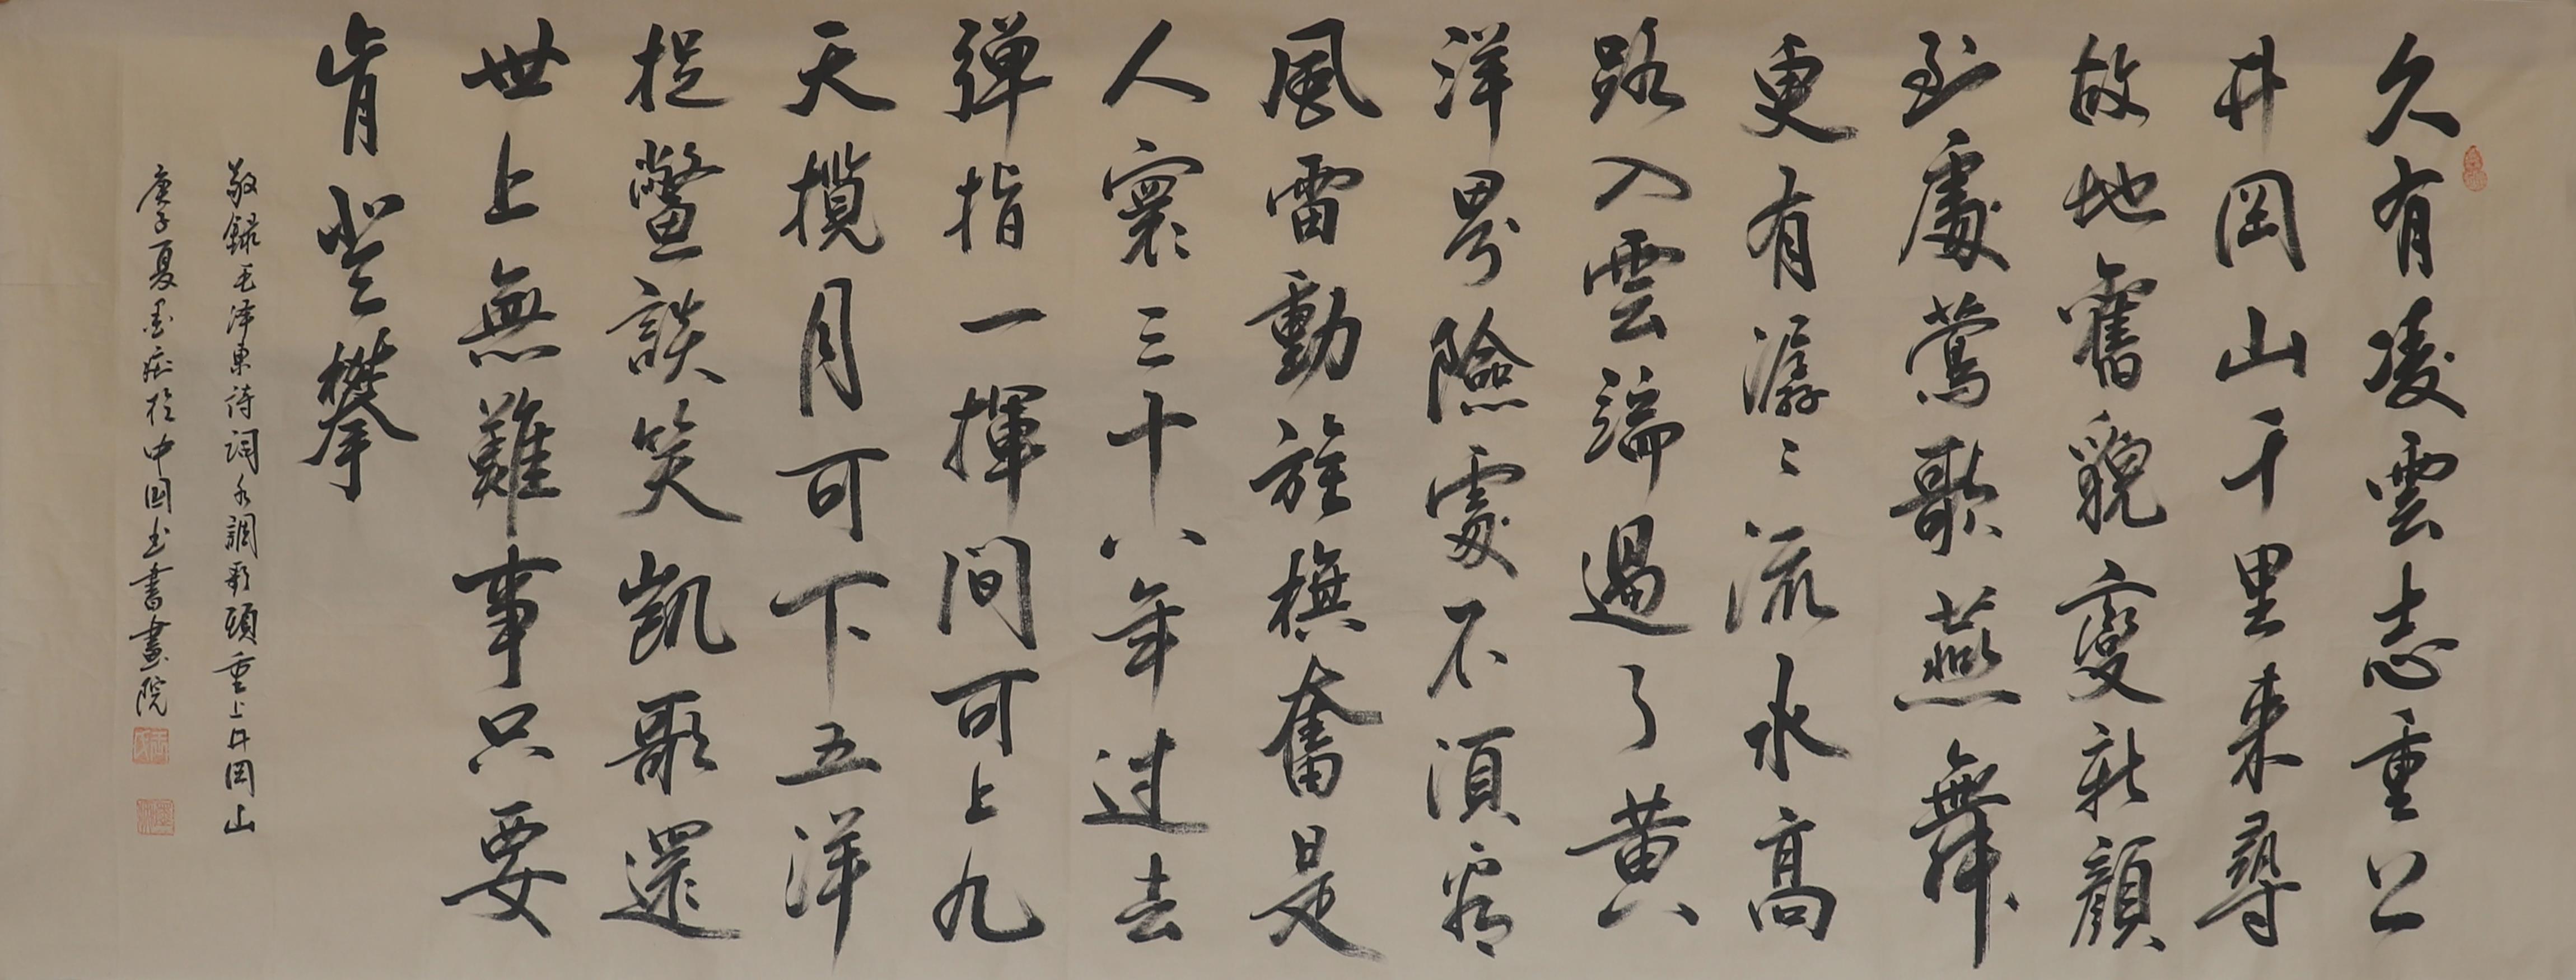 久有凌雲志重上
井岡山千里来尋
故地舊貌變新顏
到處鶯歌燕舞
更有潺〻流水高
路入雲端過了黄
洋界險處不須看
風雷動旌旗奮是
人寰三十八年过去
弹指一揮間可上九
天攬月可下五洋
捉鱉談笑凱歌還
世上無難事只要
肯登攀
敬録毛泽東诗词水調歌頭重上井岡山
庚子夏於中国書畫院